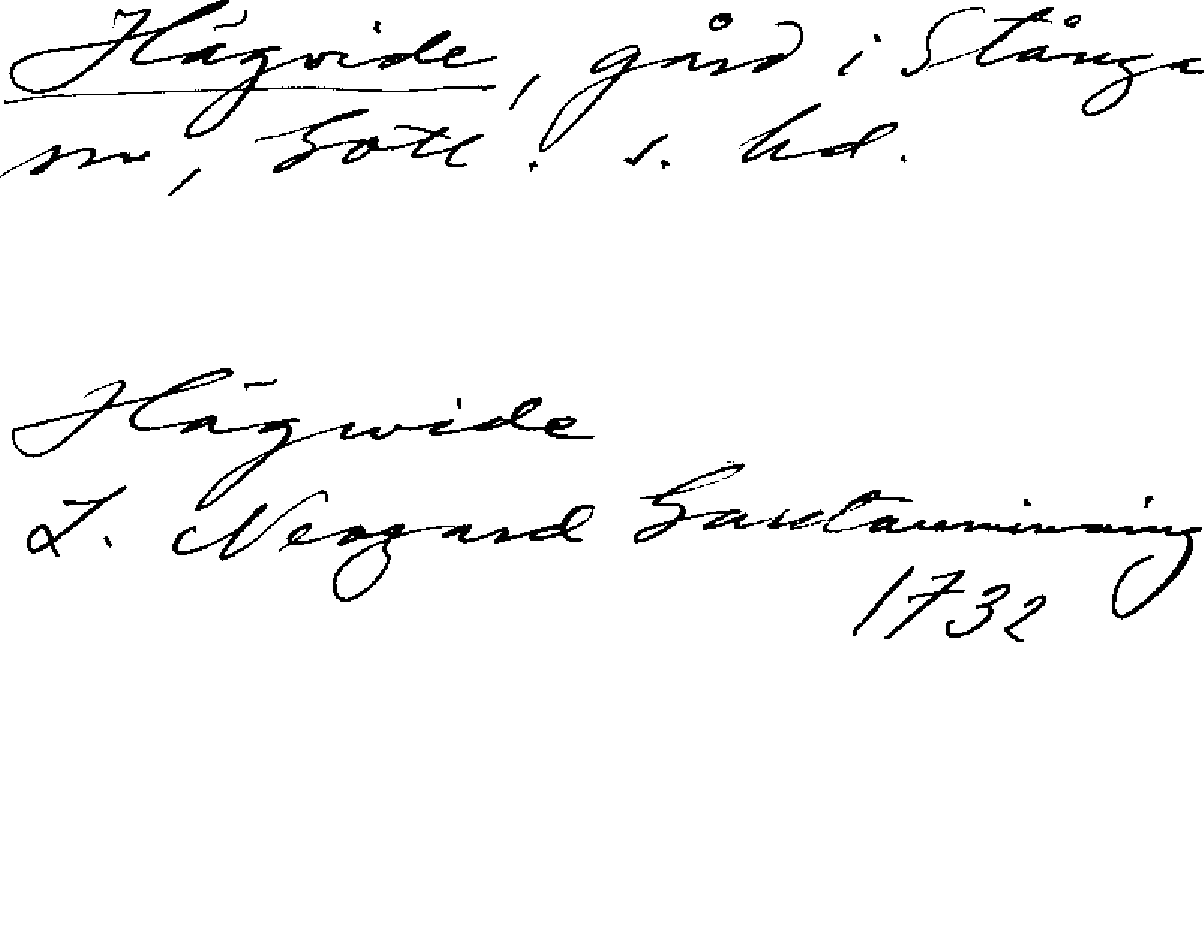 Hägvide, gård i Stånga
sn, Gotl. s. hd.
Hägwide
L. Neogard Gautauminning
1732